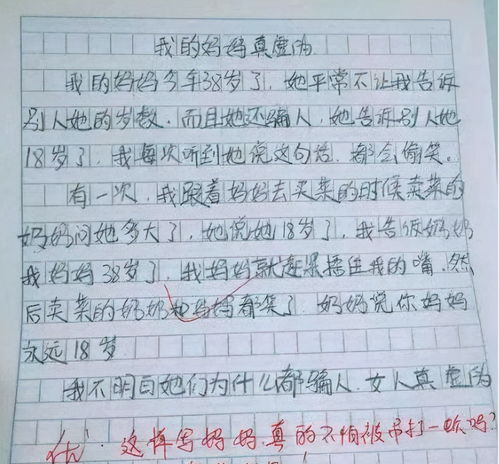 我的妈妈真虚伪
我的妈妈今年38岁了，她平常不让我告诉
别人她的岁数，而且她还骗人，她告诉别人她
18岁了，我每次听到她说这句话，都会偷笑。
有一次，我跟着妈妈去买菜的时候卖菜的
奶奶问她多大了，她说她18岁了，我告诉奶奶
我妈妈38岁了，我妈妈就赶紧捂住我的嘴，然
后卖菜的奶奶和妈妈都笑了，奶奶说你妈妈
永远18岁
我不明白她们为什么都骗人，女人真虚伪
优，这样写妈妈，真的不怕被吊打一顿吗？